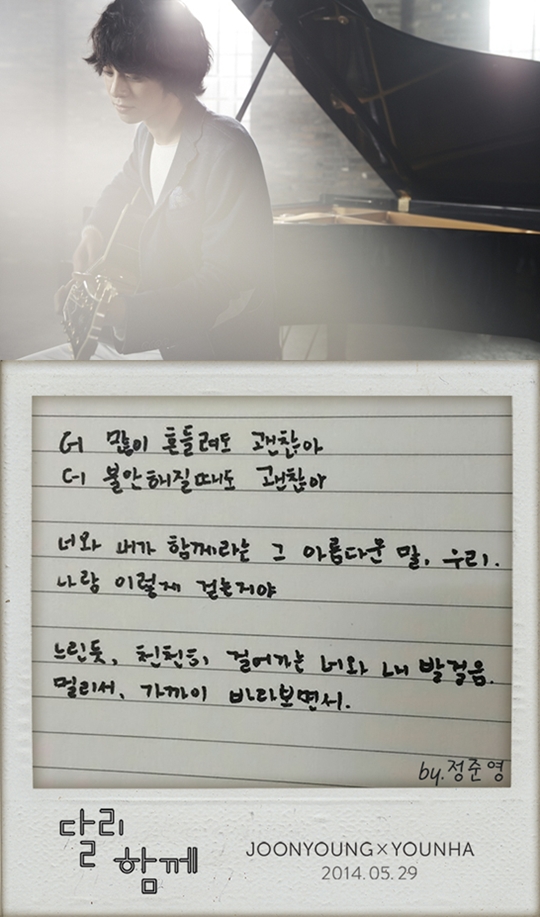 더 많이 흔들려도 괜찮아
더 불안해질때도 괜찮아
너와 내가 함께라는 그 아름다운 말, 우리.
나랑 이렇게 걷는거야
느린듯, 천천히 걸어가는 너와 내 발걸음.
멀리서, 가까이 바라보면서.
by.정준영
달리
함께
JOONYOUNG×YOUNHA
2014.05.29